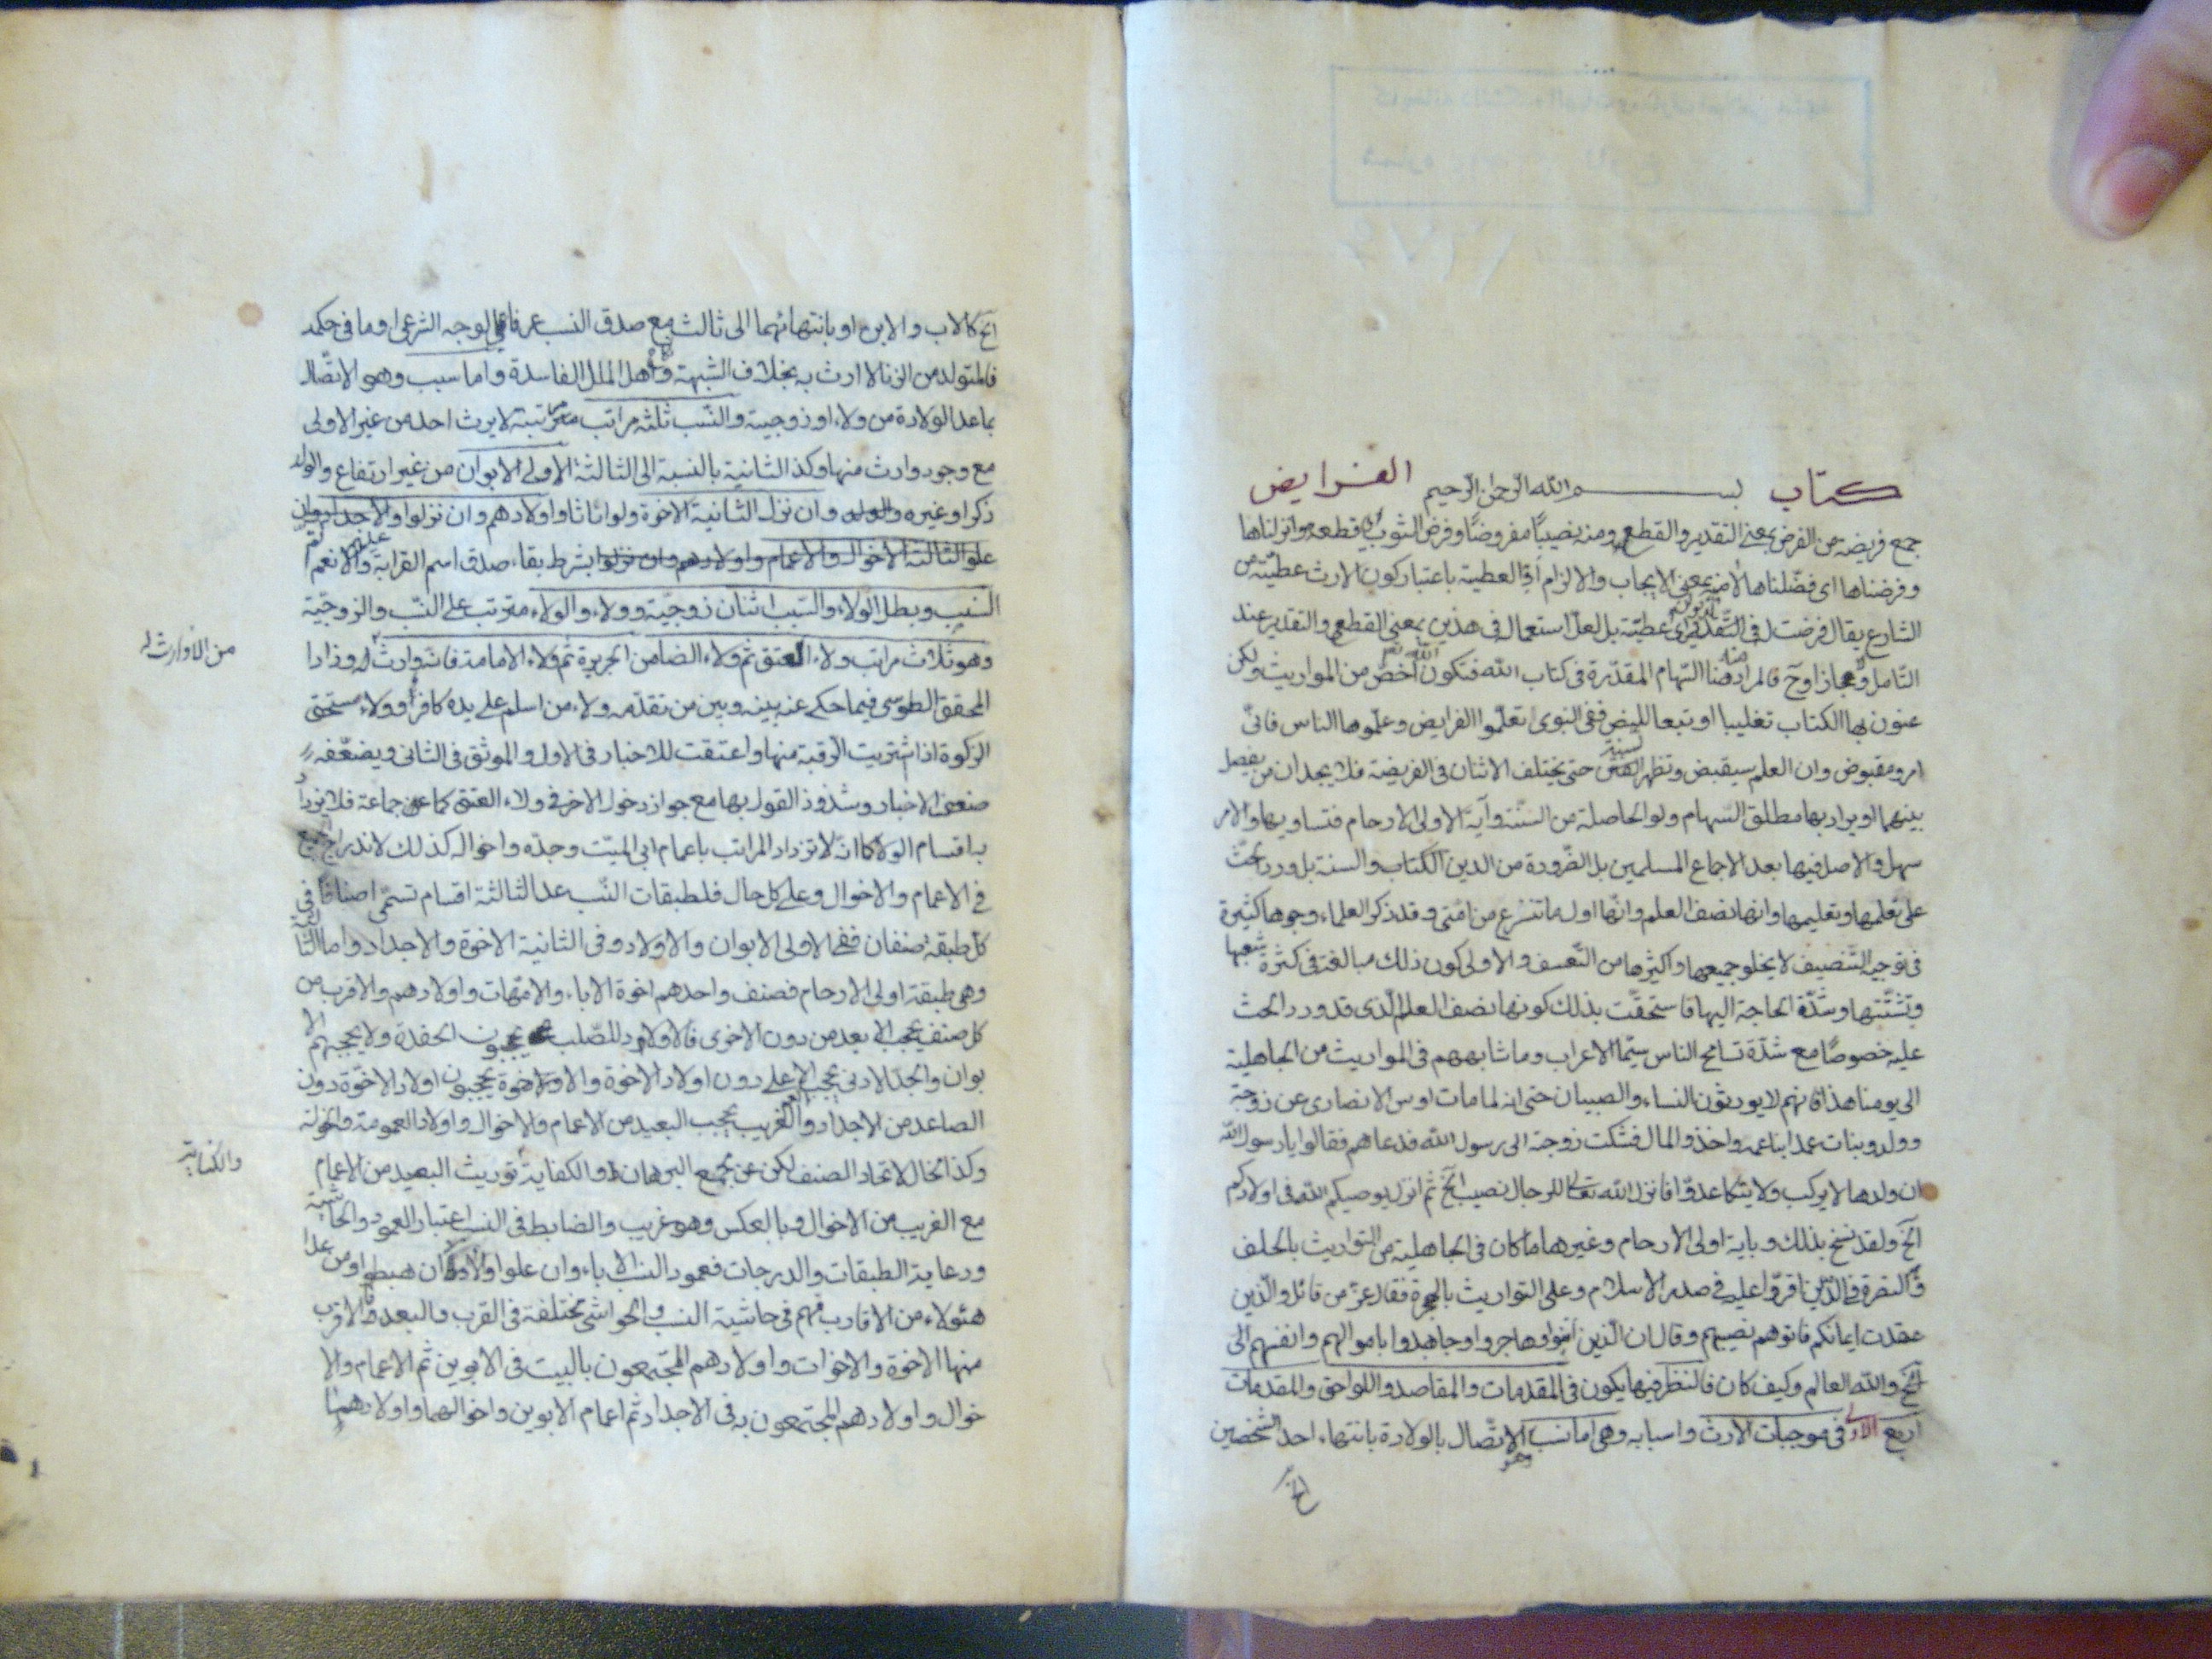 كتاب بسم الله الرحمن الرحيم الفرايض
جمع فريضة من الفرض بمعنى التقدير والقطع ومنه نصيبًا مفروضًا وفرض الثوب اى قطعه وانزلناها
وفرضناها اى فصّلناها لا منه بمعنى الايجاب والالزام او العطية باعتبار كون الارث عطيّة من
الشارع يقال فرضت له فى اى عطيّة بل لعلّ استعماله فى هذين بمعنى القطعى والتقدير عند
التامل مجازا وح فالمراد هنا السّهام المقدّرة فى كتاب الله فتكون اخصّ من المواريث ولكن
عنون بها الكتاب تغليبا او تبعا للنبض ففى النبوى تعلّموا الفرايض وعلّموها الناس فانىّ
امرء مقبوض وان العلم سيقبض وتظهر الفتن حتى يختلف الاثنان فى الفريضة فلا يجدان من يفصل
بينهما او يراد بها مطلق السّهام ولو الحاصلة من السنّة وآية الاولى الارحام فتساويها والامر
سهل والاصل فيها بعد الاجماع المسلمين بل الضّرورة من الدين الكتاب والسنة بل ورد الحثّ
على تعلمها وتعليمها وانها نصف العلم وانّها اول ما تنتزع من امّتى وقد ذكر العلماء وجوها كثيرة
فى توجيه التنصيف لا يخلو جميعها او اكثرها من التّعسف والاولى كون ذلك مبالغة فى كثرة شعبها
وتشتّتها وشدّة الحاجة اليها فاستحقّت بذلك كونها نصف العلم الّذى قد ورد الحث
عليه خصوصًا مع شدّة تسامح الناس سيّما الاعراب وما شابههم فى المواريث من الجاهلية
الى يومنا هذا فانهم لا يورثون النساء والصبيان حتى انه لما مات اوس الانصارى عن زوجة
وولد وبنات عمد ابنا عمه واخذوا المال فشكت زوجته الى رسول الله فدعاهم فقالوا يا رسول الله
ان ولدها لا يركب ولا ينكا عدوّا فانزل الله تعالى للرجال نصيب الخ ثم انزل يوصيكم الله فى اولادكم
الخ ولقد نسخ بذلك وباية اولى الارحام وغيرها ما كان فى الجاهلية من التواريث بالحلف
والنصرة الذين اقرّوا عليه فى صدر الاسلام وعلى التواريث بالهجرة فقال عزّ من قائل والّذين
عقدت ايمانكم فاتوهم نصيبهم وقال ان الّذين امنوا وهاجروا وجاهدوا باموالهم وانفسهم الى
الخ والله العالم وكيف كان فالنظر فيها يكون فى المقدمات والمقاصد واللواحق والمقدمات
اربع الاولى فى موجبات الارث واسبابه وهى اما نسب وهو الاتّصال بالولادة بانتهاء احد الشخصين
الخ
الخ كالاب والابن او بانتهائهما الى ثالث مع صدق النسب عرفا على الوجه الشرعى او ما فى حكمه
فالمتولد من الزنا لا ارث به بخلاف الشبهة واهل الملل الفاسدة واما سبب وهو الاتّصال
بما عدا الولادة من ولاء او زوجية والنّسب ثلثه مراتب مترتبة لا يرث احد من غير الاولى
مع وجود وارث منها وكذا الثانية بالنسبة الى الثالثة الاولى الابوان من غير ارتفاع والولد
ذكرا او غيره وان نزل الثانية الاخوة ولو اناثا واولادهم وان نزلوا والاجداد وان
علوا الثالثة الاخوال والاعمام واولادهم وان نزلوا بشرط بقاء صدق اسم القرابة والا نعم
النسب وبطل الولاء والسّبب اثنان زوجيّة وولاء والولاء مترتب على النسب والزوجيّة
وهو ثلاث مراتب ولاء العتق ثم ولاء الضامن الجريرة ثم ولاء الامامة فانه وارث له وزادا
من لا وارث له
المحقق الطوسى فيما حكى عنه بينه وبين من تقدّمه ولاء من اسلم على يده كافر او ولاء مستحق
الزكوة اذا اشتريت الرقبة منها واعتقت للاخبار فى الاول والموثق فى الثانى ويضعّفه
ضعف الاخبار وشذوذ القول بها مع جواز دخول الاخر فى ولاء العتق كما عن جماعة فلا يزداد
به اقسام الولاء كما انّه لا تزداد المراتب باعمام ابى الميّت وجدّه واخواله كذلك لاندراج الجميع
فى الاعمام والاخوال وعلى كل حال فلطبقات النّسب عدا الثالثة اقسام تسمّى اصنافا فى
كل طبقة صنفان ففى الاولى الابوان والاولاد وفى الثانية الاخوة والاجداد واما الثالثة
وهى طبقة اولى الارحام فصنف واحد هم اخوة الاباء والامّهات واولادهم والاقرب من
كل صنف يحجب الابعد من دون الاخرى فالاولاد للصّلب يحجبون الحفدة ولا يحجبهم الا
بوان والجدّ الادنى يحجب الاعلى دون اولاد الاخوة والاخوة يحجبون اولاد الاخوّة دون
الصاعد من الاجداد والقريب يحجب البعيد من الاعمام والاخوال واولاد العمومة والخولة
وكذا الخال لاتحاد الصنف لكن عن مجمع البرهان والكفاية توريث البعيد من الاعمام
والكفاية
مع القريب من الاخوال وبالعكس وهو غريب والضابط فى النسب اعتبار العمود والحاشية
ورعاية الطبقات والدرجات فعمود النسب الاباء وان علوا والاولاد وان هبطوا ومن عدا
هئولاء من الاقارب فهم فى حاشية النسب والحواشى مختلفة فى القرب والبعد والاقرب
منها الاخوة والاخوات واولادهم المجتمعون بالبيت فى الابوين ثم الاعمام والا
خوال واولادهم المجتمعون به فى الاجداد ثم اعمام الابوين واخوالهما واولادهما